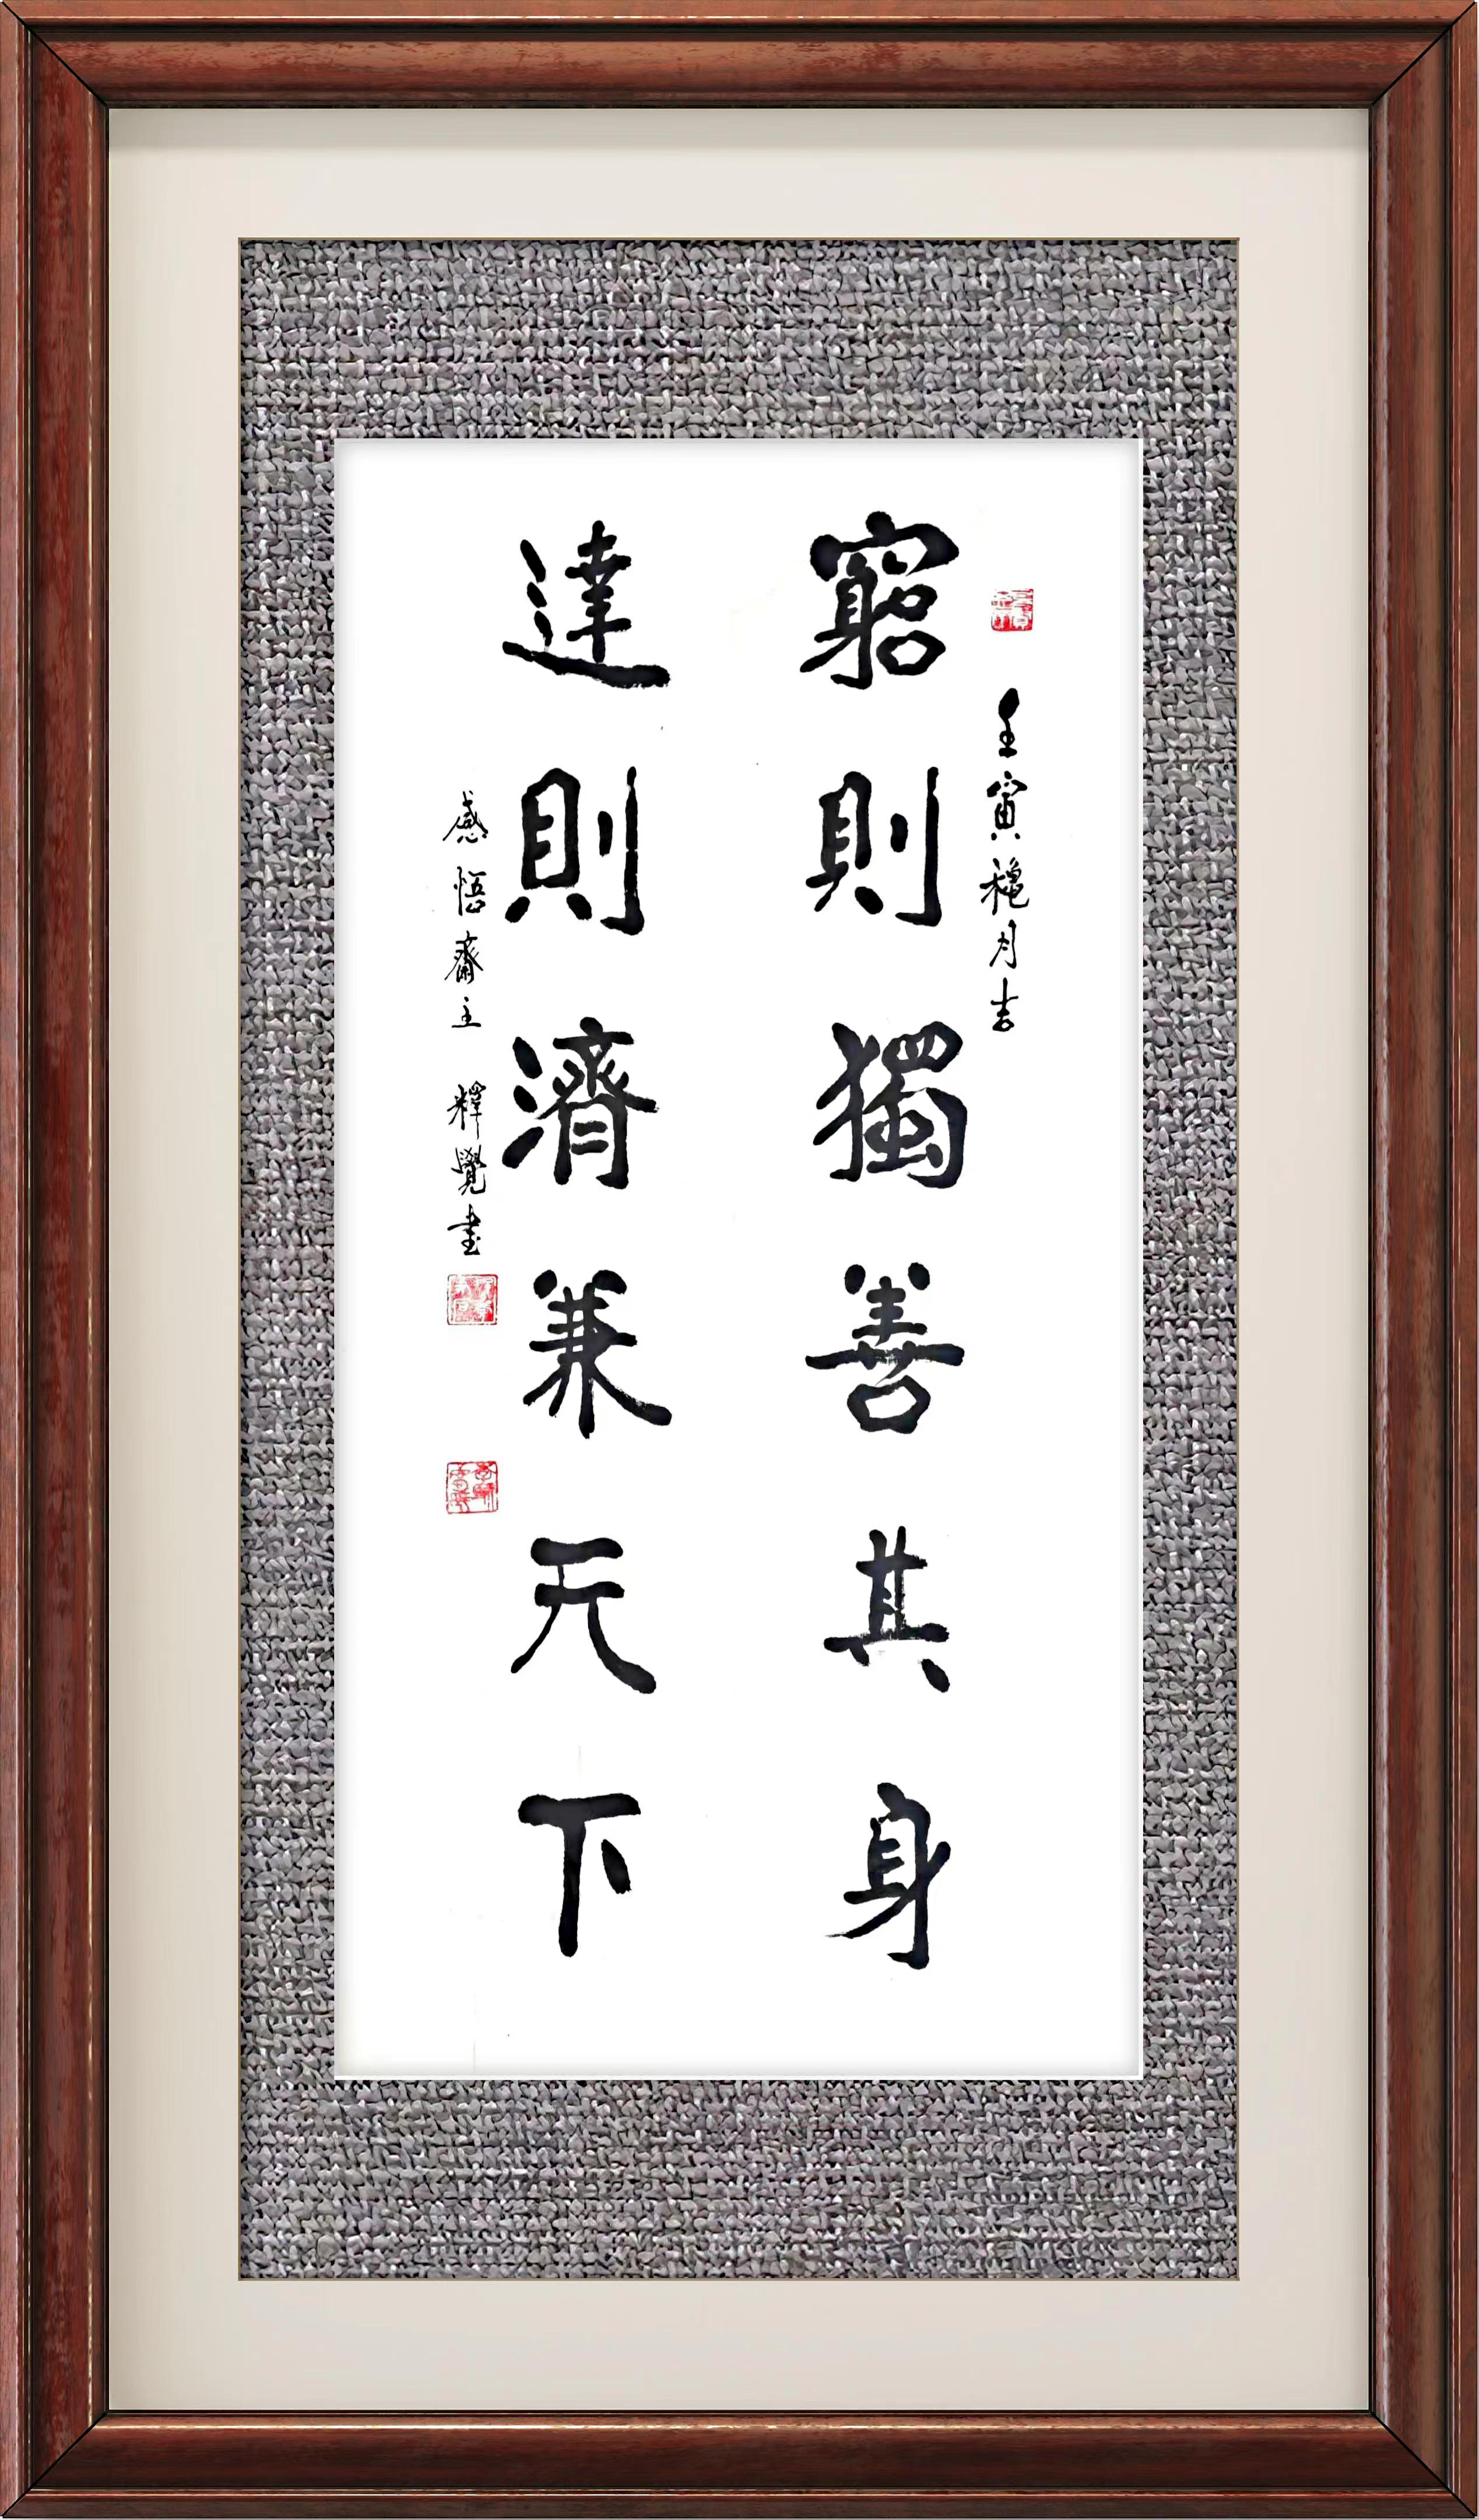 壬寅穐月吉
竆則獨善其身
達則濟兼天下
感悟齋主 釋覺書